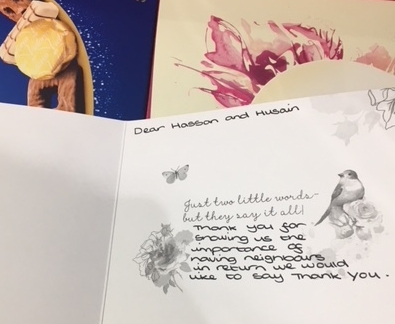 Dear Hassan and Husain
Just two little words~
but they say it all!
Thank you for
showing us the
importance of
having neighbours
in return we would
like to say Thank you.